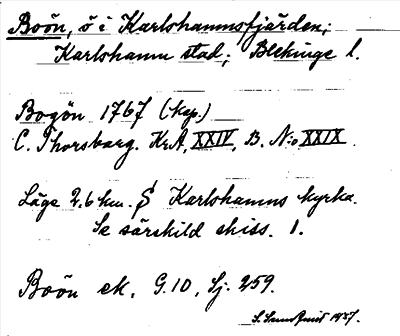 Boön, ö i Karlshamnsfjärden;
Karlshamn stad; Blekinge l.
Bogön 1767 (kap.)
C. Thorsbarg. KrA, XXIV, B. N:o XXIX.
Läge 2,6 km. S Karlshamns kyrka.
Se särskild skiss. 1.
Boön ek. G.10, Sj. 259.
S. 1937.